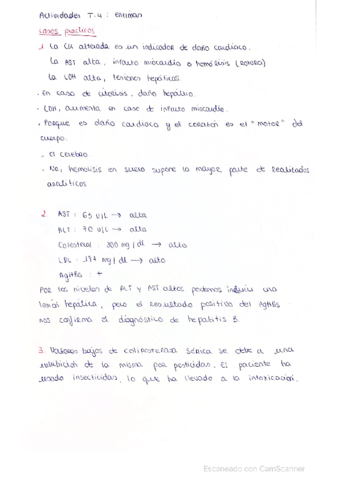 Actividades T.4: Enziman
Casos prácticos
1. La CK alterada es un indicador de daño cardíaco.
La AST alta, infarto miocardio o hemólisis
La LDH alta, lesiones hepáticas.
- En caso de citolisis, daño hepático.
- LDH, aumenta en caso de infarto miocardio.
- Porque es daño cardíaco y el corazón es el "motor" del
cuerpo.
- El cerebro.
- No, hemolisis en suero supone la mayor parte de resultados
analíticos
2. AST: 65 U/L → alta
ALT: 70 U/L → alta
Colesterol: 300 mg/dl → alto
mg/dl → alto
AgHBs: +
Por los niveles de ALT y AST altos podemos inferir una
lesión hepática, pero el resultado positivo del AgHBs
nos confirma el diagnóstico de hepatitis B.
3. Valores bajos de colinesterasa sérica se debe a una
inhibición de la misma por pesticidas. El paciente ha
usado insecticidas, lo que ha llevado a la intoxicación.
Escaneado con CamScanner